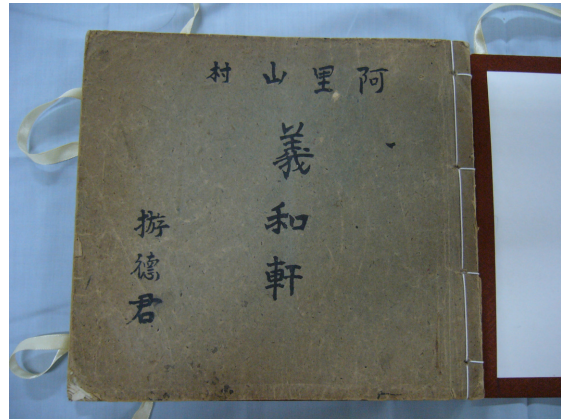 阿里山村
義和軒
游德君